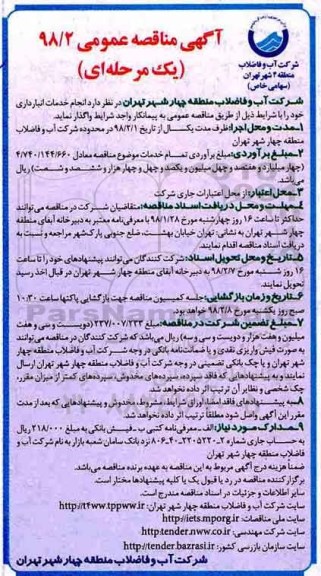 آگهی مناقصه عمومی ۹۸/۲
(یک مرحله‌ای)
شرکت آب و فاضلاب
منطقه ۴ شهر تهران
(سهامی خاص)
شرکت آب و فاضلاب منطقه چهار شهر تهران در نظر دارد انجام خدمات انبارداری
خود را با شرایط ذیل از طریق مناقصه عمومی به پیمانکار واجد شرایط واگذار نماید.
۱ـ مدت و محل اجرا: ظرف مدت یکسال از تاریخ ۹۸/۲/۱ در محدوده شرکت آب و فاضلاب
منطقه چهار شهر تهران
۲ـ مبلغ برآوردی: مبلغ برآوردی تمام خدمات موضوع مناقصه معادل ۴/۷۴۰/۱۴۴/۶۶۰
(چهار میلیارد و هفتصد و چهل میلیون و یکصد و چهل و چهار هزار و ششصد و شصت) ریال
می‌باشد.
۳ـ محل اعتبار: از محل اعتبارات جاری شرکت
۴ـ مهلت و محل دریافت اسناد مناقصه: متقاضیان شرکت در مناقصه می‌توانند
حداکثر تا ساعت ۱۶ روز چهارشنبه مورخ ۹۸/۱/۲۸ با معرفی‌نامه معتبر به دبیرخانه آبفای منطقه
چهار شهر تهران به نشانی: تهران خیابان بهشت، ضلع جنوبی پارک‌شهر مراجعه و نسبت به
دریافت اسناد مناقصه اقدام نمایند.
۵ـ تاریخ و محل تحویل اسناد: شرکت کنندگان می‌توانند پیشنهادهای خود را تا ساعت
۱۶ روز شنبه مورخ ۹۸/۲/۷ به دبیرخانه آبفای منطقه چهار شهر تهران در قبال اخذ رسید
تحویل نمایند.
۶ـ تاریخ و زمان بازگشایی: جلسه کمیسیون مناقصه جهت بازگشایی پاکتها ساعت ۱۰:۳۰
صبح روز یکشنبه مورخ ۹۸/۲/۸ خواهد بود.
۷ـ مبلغ تضمین شرکت در مناقصه: مبلغ ۲۳۷/۰۰۷/۲۳۳ (دویست و سی و هفت
میلیون و هفت هزار و دویست و سی و سه) ریال می‌باشد که شرکت کنندگان در مناقصه می‌توانند
به صورت فیش واریزی نقدی و یا ضمانت‌نامه بانکی در وجه شرکت آب و فاضلاب منطقه چهار
شهر تهران و یا چک بانکی تضمینی در وجه شرکت آب و فاضلاب منطقه چهار شهر تهران ارسال
نمایند و به پیشنهادهایی که فاقد سپرده، سپرده‌های مخدوش، سپرده‌های کمتر از میزان مقرر،
چک شخصی و نظایر آن ترتیب اثر داده نخواهد شد.
۸ـ به پیشنهادهای فاقد امضا، اوراق شرایط، مشروط، مخدوش و پیشنهادهایی که بعد از مدت
مقرر این آگهی واصل شود مطلقا ترتیب اثر داده نخواهد شد.
۹ـ مدارک مورد نیاز: الف ـ معرفی‌نامه کتبی ب ـ فیش بانکی به مبلغ ۲۱۸/۰۰۰ ریال
به حساب جاری شماره نزد بانک سامان شعبه بازار به نام شرکت آب و
فاضلاب منطقه چهار شهر تهران
ضمناً هزینه درج آگهی مربوط به این مناقصه به عهده برنده مناقصه می‌باشد.
برگزار کننده مناقصه در رد یا قبول یک یا کلیه پیشنهادها مختار است.
سایر اطلاعات و جزئیات در اسناد مناقصه مندرج است.
سایت شرکت آب و فاضلاب منطقه چهار شهر تهران: http://t4ww.tppww.ir
سایت ملی مناقصات: http://iets.mporg.ir
سایت شرکت مهندسی: http:tender.nww.co.ir
سایت سازمان بازرسی کشور: http://tender.bazrasi.ir
شرکت آب و فاضلاب منطقه چهار شهر تهران